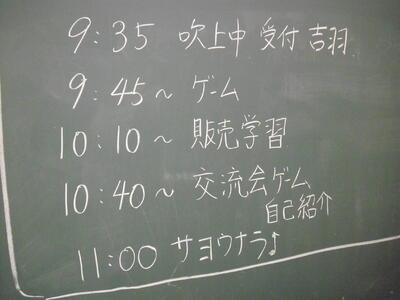 9:35 吹上中 受付 吉羽
9:45～ ゲーム
10:10～ 販売学習
10:40～ 交流会ゲーム
自己紹介
11:00 サヨウナラ♪